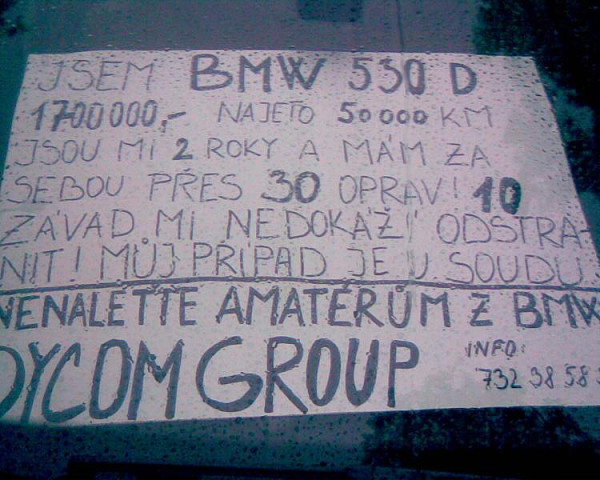 JSEM BMW 530 D
1700000,- NAJETO 50000 KM
JSOU MI 2 ROKY A MÁM ZA
SEBOU PŘES 30 OPRAV! 10
ZÁVAD MI NEDOKÁŽÍ ODSTRA-
NIT! MŮJ PŘÍPAD JE U SOUDU
NENALEŤTE AMATÉRŮM Z BMW
DYCOM GROUP
INFO:
732 38 58